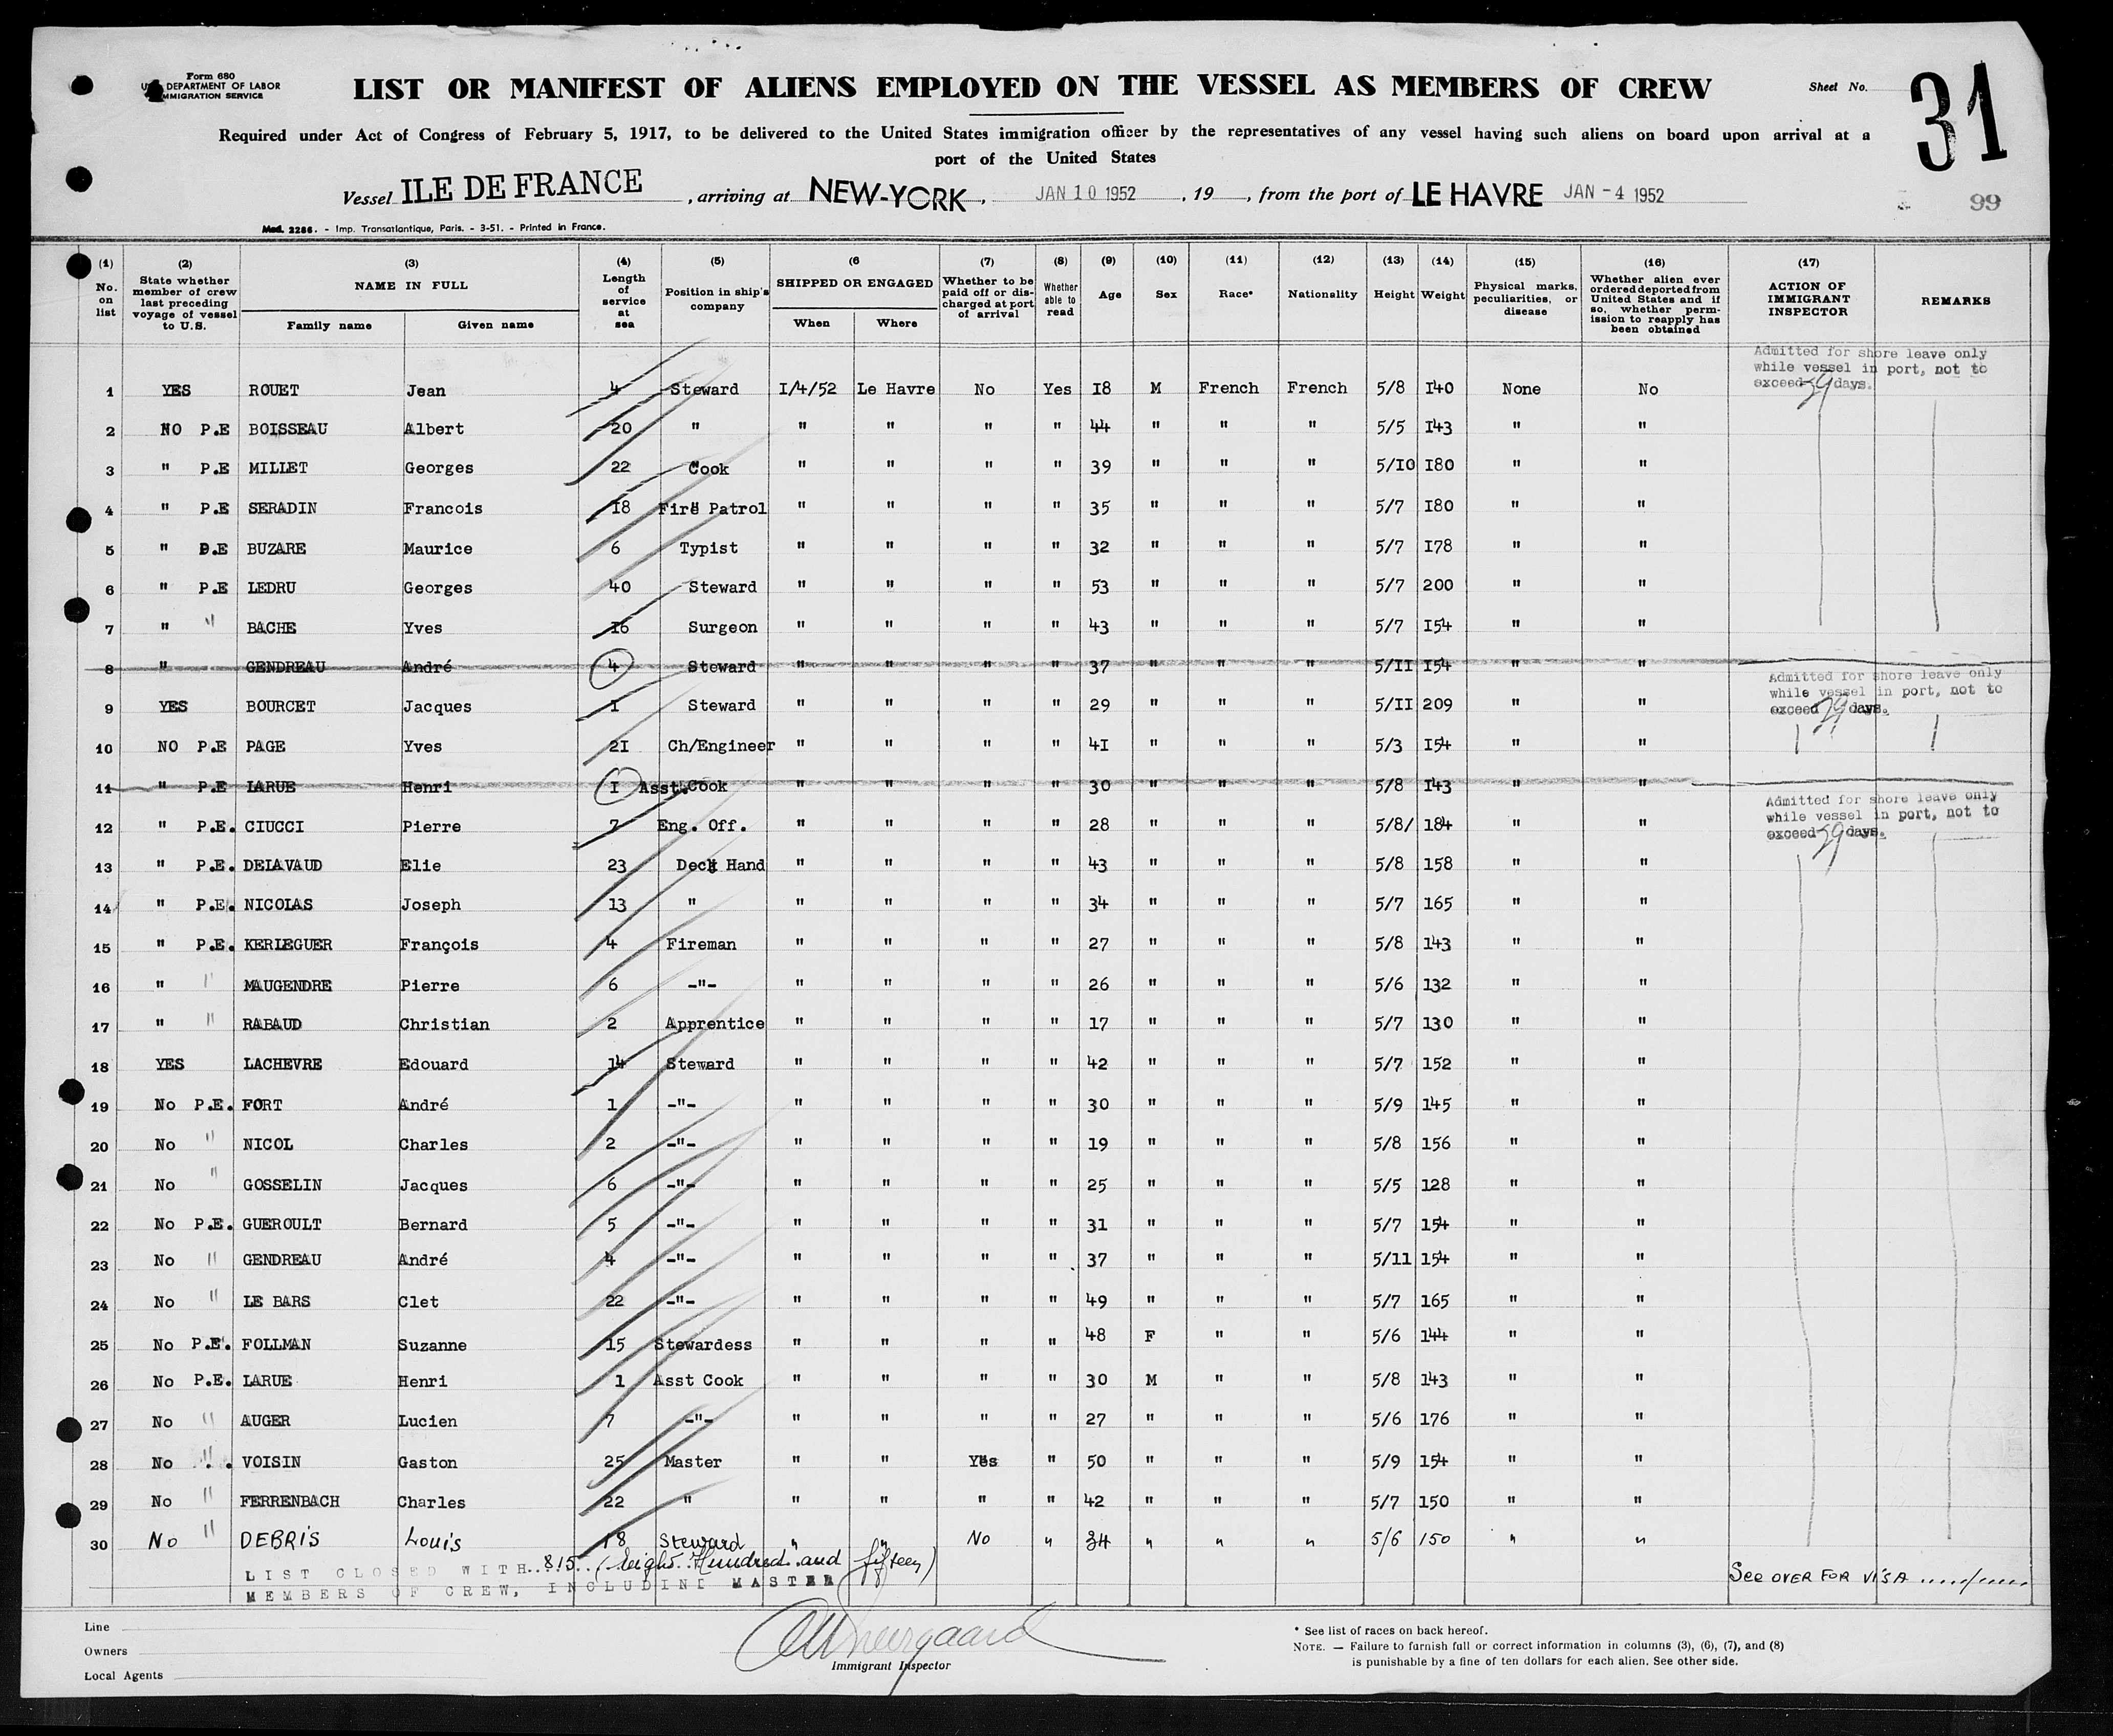 Form 680
U.S. DEPARTMENT OF LABOR
IMMIGRATION SERVICE
LIST OR MANIFEST OF ALIENS EMPLOYED ON THE VESSEL AS MEMBERS OF CREW
Sheet No. 31
Required under Act of Congress of February 5, 1917, to be delivered to the United States immigration officer by the representatives of any vessel having such aliens on board upon arrival at a
port of the United States
Vessel ILE DE FRANCE , arriving at NEW-YORK , JAN 10 1952 , 19 , from the port of LE HAVRE JAN -4 1952
99
Mod. 2286. - Imp. Transatlantique, Paris. - 3-51. - Printed in France.
(1) No. on list
(2) State whether member of crew last preceding voyage of vessel to U.S.
(3) NAME IN FULL Family name Given name
(4) Length of service at sea
(5) Position in ship's company
(6 SHIPPED OR ENGAGED When Where
(7) Whether to be paid off or discharged at port of arrival
(8) Whether able to read
(9) Age
(10) Sex
(11) Race*
(12) Nationality
(13) Height
(14) Weight
(15) Physical marks, peculiarities, or disease
(16) Whether alien ever ordered deported from United States and if so, whether permission to reapply has been obtained
(17) ACTION OF IMMIGRANT INSPECTOR
REMARKS
Admitted for shore leave only
while vessel in port, not to
exceed 29 days.
1 YES ROUET Jean 4 Steward 1/4/52 Le Havre No Yes 18 M French French 5/8 140 None No
2 NO P.E BOISSEAU Albert 20 " " " " " 44 " " " 5/5 143 " "
3 " P.E MILLET Georges 22 Cook " " " " 39 " " " 5/10 180 " "
4 " P.E SERADIN Francois 18 Fire Patrol " " " " 35 " " " 5/7 180 " "
5 " P.E BUZARE Maurice 6 Typist " " " " 32 " " " 5/7 178 " "
6 " P.E LEDRU Georges 40 Steward " " " " 53 " " " 5/7 200 " "
7 " " BACHE Yves 16 Surgeon " " " " 43 " " " 5/7 154 " "
8 " GENDREAU André 4 Steward " " " " 37 " " " 5/11 154 " "
Admitted for shore leave only
while vessel in port, not to
exceed 29 days.
9 YES BOURCET Jacques 1 Steward " " " " 29 " " " 5/11 209 " "
10 NO P.E PAGE Yves 21 Ch/Engineer " " " " 41 " " " 5/3 154 " "
11 " P.E LARUE Henri 1 Asst.Cook " " " " 30 " " " 5/8 143 " "
Admitted for shore leave only
while vessel in port, not to
exceed 29 days.
12 " P.E. CIUCCI Pierre 7 Eng. Off. " " " " 28 " " " 5/8/ 184 " "
13 " P.E. DELAVAUD Elie 23 Deck Hand " " " " 43 " " " 5/8 158 " "
14 " P.E. NICOLAS Joseph 13 " " " " " 34 " " " 5/7 165 " "
15 " P.E. KERLEGUER François 4 Fireman " " " " 27 " " " 5/8 143 " "
16 " " MAUGENDRE Pierre 6 -"- " " " " 26 " " " 5/6 132 " "
17 " " RABAUD Christian 2 Apprentice " " " " 17 " " " 5/7 130 " "
18 YES LACHEVRE Edouard 14 Steward " " " " 42 " " " 5/7 152 " "
19 No P.E. FORT André 1 -"- " " " " 30 " " " 5/9 145 " "
20 No " NICOL Charles 2 -"- " " " " 19 " " " 5/8 156 " "
21 No " GOSSELIN Jacques 6 -"- " " " " 25 " " " 5/5 128 " "
22 No P.E. GUEROULT Bernard 5 -"- " " " " 31 " " " 5/7 154 " "
23 No " GENDREAU André 4 -"- " " " " 37 " " " 5/11 154 " "
24 No " LE BARS Clet 22 -"- " " " " 49 " " " 5/7 165 " "
25 No P.E. FOLLMAN Suzanne 15 Stewardess " " " " 48 F " " 5/6 144 " "
26 No P.E. LARUE Henri 1 Asst Cook " " " " 30 M " " 5/8 143 " "
27 No " AUGER Lucien 7 -"- " " " " 27 " " " 5/6 176 " "
28 No " VOISIN Gaston 25 Master " " Yes " 50 " " " 5/9 154 " "
29 No " FERRENBACH Charles 22 " " " " " 42 " " " 5/7 150 " "
30 No " DEBRIS Louis 18 Steward " " No " 34 " " " 5/6 150 " "
LIST CLOSED WITH..815..(eight Hundred and fifteen)
MEMBERS OF CREW, INCLUDING MASTER
See OVER FOR VISA
Line
Owners
Local Agents
Immigrant Inspector
* See list of races on back hereof.
NOTE. — Failure to furnish full or correct information in columns (3), (6), (7), and (8)
is punishable by a fine of ten dollars for each alien. See other side.